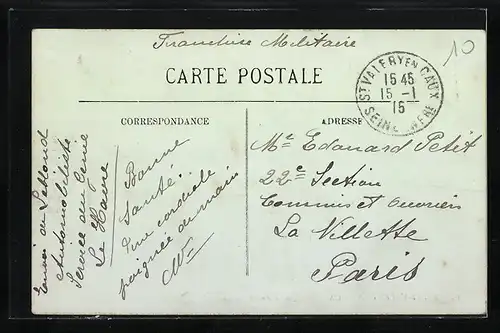 Franchise Militaire
10
CARTE POSTALE
ST VALERY EN CAUX
16 45
15 -1
16
SEINE INFRE
CORRESPONDANCE
ADRESSE
Envoi de
Automobiliste
Service du Génie
Le Havre
Bonne
Santé.
Une cordiale
poignée de main
Mr Edouard Petit
22e Section
Commis et Ouvriers
La Villette
Paris